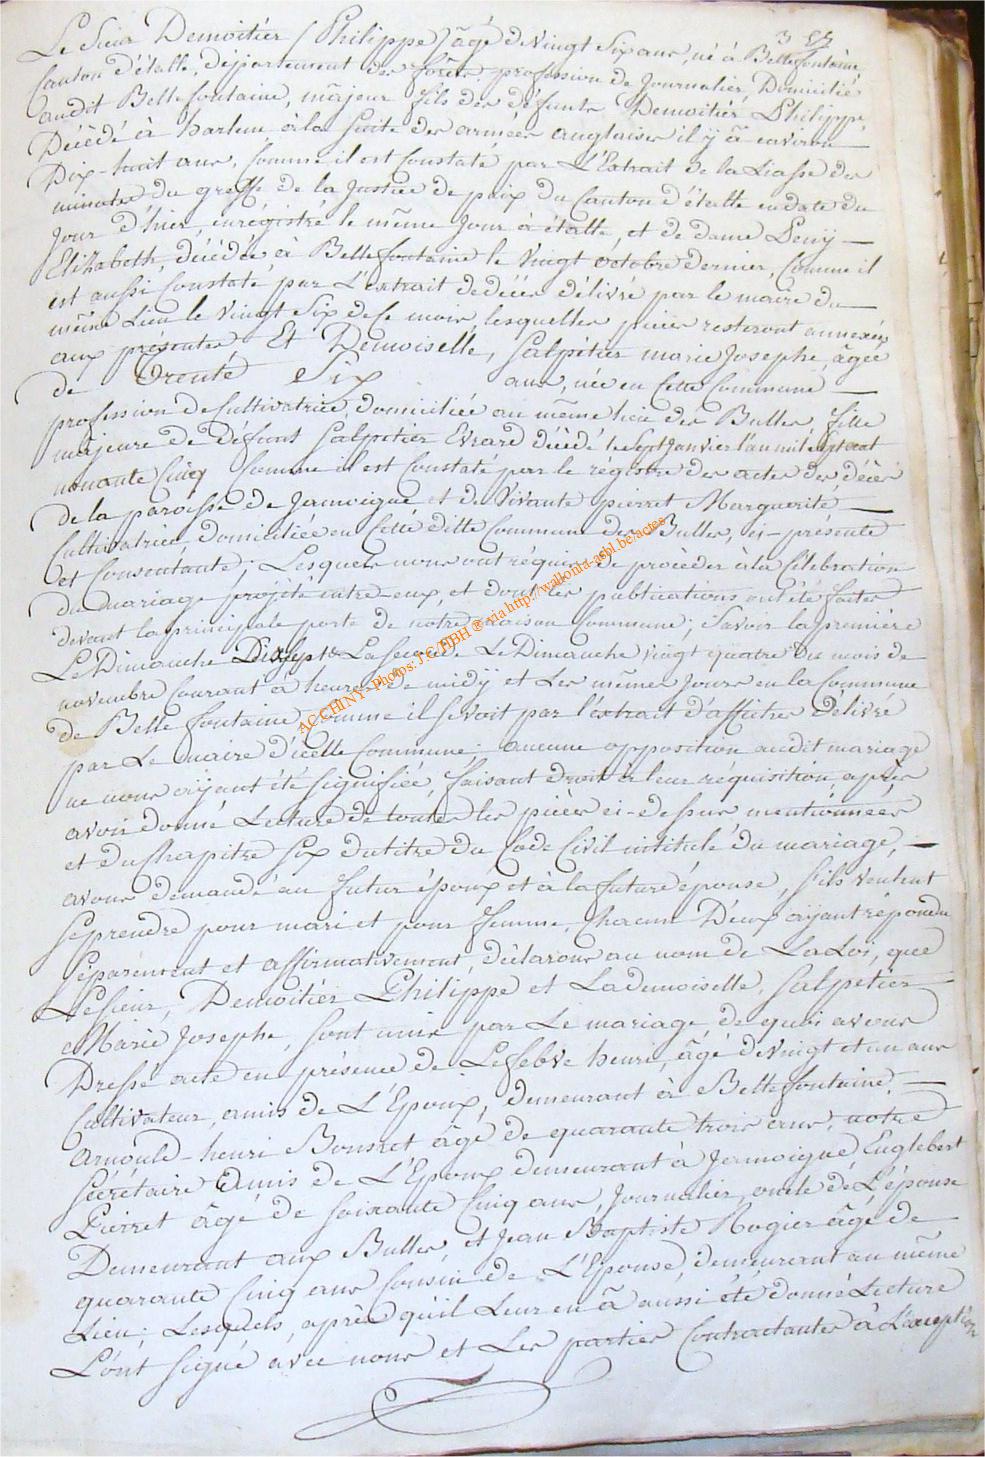 Le Sieur Demoitiér (Philippe) âgé de Vingt Six ans, né à Bellefontaine
Canton d'étalle, département des forêts profession de Journalier, Domicilié
audit Bellefontaine, majeur fils des défunts Demoitiér Philippe
Décédé à harlem à la Suite des armées anglaises il ÿ a environ
Dix-huit ans, Comme il est Constaté par L'Extrait de la Liasse des
minutes du greffe de la Justice de paix du Canton d'étalle en date du
Jour d'hier, enrégistré le même Jour à étalle, et de dame Lenij
Elizabeth, décédée à Bellefontaine le Vingt octobre dernier, Comme il
est aussi Constaté par L'extrait de décès délivré par le maire du
même Lieu le Vingt Six de Ce mois, lesquelles pièces resteront annexées
aux présentes Et Demoiselle, Salpétier marie Josephe, âgée
de Trente Six ans, née en Cette Commune
profession de Cultivatrice, domiciliée au même lieu des Bulles, fille
majeure de défunt Salpetier Evrard décédé le Sept Janvier l'an mil Sept cent
nonante Cinq Comme il est Constaté par le registre des actes de décès
de la paroisse de Jamoigne et de Vivante pierret Marguerite
Cultivatrice domiciliée en Cette ditte Commune des Bulles, ici-présente
et Consentante; Lesquels nous ont réquis de procèder à la Célébration
du mariage projété entre eux, et dont les publications ont été faites
devant la principale porte de notre maison Commune; Savoir la première
Le Dimanche Dixsept La seconde Le Dimanche Vingt quatre du mois de
novembre Courant à heures de midÿ et Les mêmes Jours en la Commune
de Bellefontaine Comme il se voit par l'extrait d'affiches Délivré
par Le maire d'icelle Commune; aucune opposition audit mariage
ne nous aÿant été Signifiée, faisant droit à leur réquisition, après
avoir donné Lecture de toutes les pièces ci-dessus mentionnées
et du Chapitre Six du titre du Code Civil intitulé du mariage,
avons demandé au futur époux et à la future épouse, S'ils veulent
Se prendre pour mari et pour femme, Chacun D'eux aÿant répondu
Séparément et affirmativement, déclarons au nom de La Loi, que
Le Sieur, Demoitiér Philippe et La demoiselle, Salpetiér
Marie Josephe, Sont unis par Le mariage, de quoi avons
Dressé acte en présence de Lefebve henri, âgé de Vingt et un ans
Cultivateur, amis de L'Epoux, demeurant à Bellefontaine,
Arnould-henri Bonsret âgé de quarante trois ans, notre
Sécrétaire Amis de L'Epoux demeurant à Jamoigne, Englebert
Pierret âgé de Soixante Cinq ans, Journalier, oncle de L'épouse
Demeurant aux Bulles, et Jean Baptiste Rogier âgé de
quarante Cinq ans Cousin de L'Epouse, demeurant au même
Lieu; Lesquels, après qu'il Leur en à aussi été donné Lecture
L'ont Signé avec nous et Les parties Contractantes à L'exception
ACCHINY - Photos: J C/HBH ® via http://wallonia-asbl.be/actes